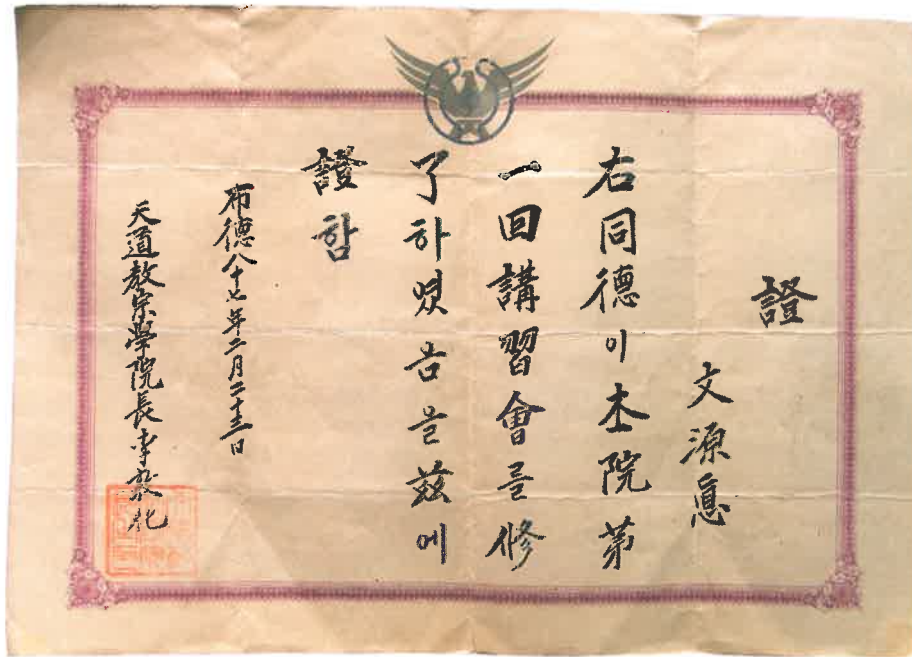 證
文源悳
右同德이本院第
一回講習會를修
了하엿슴을玆에
證함
布德八十七年二月二十三日
天道敎宗學院長李敦化